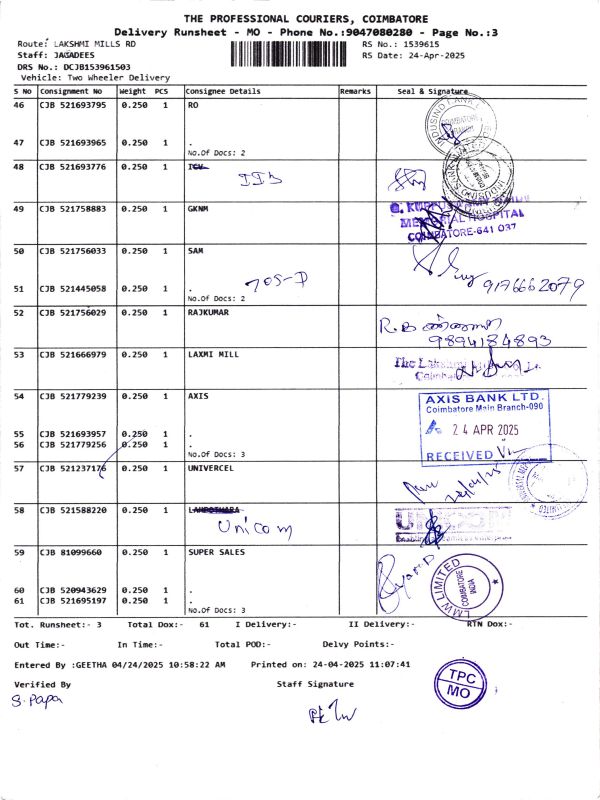 THE PROFESSIONAL COURIERS, COIMBATORE
Delivery Runsheet - MO - Phone No.:9047080280 - Page No.:3
Route: LAKSHMI MILLS RD RS No.: 1539615
Staff: JAGADEES RS Date: 24-Apr-2025
DRS No.: DCJB153961503
Vehicle: Two Wheeler Delivery
S NO Consignment No Weight PCS Consignee Details Remarks Seal & Signature
46 CJB 521693795 0.250 1 RO
47 CJB 521693965 0.250 1 .
No.Of Docs: 2
48 CJB 521693776 0.250 1
49 CJB 521758883 0.250 1 GKNM
MEMORIAL HOSPITAL
COIMBATORE-641 037
50 CJB 521756033 0.250 1 SAM
705-D
51 CJB 521445058 0.250 1 . 9176662079
No.Of Docs: 2
52 CJB 521756029 0.250 1 RAJKUMAR
9894184893
53 CJB 521666979 0.250 1 LAXMI MILL
54 CJB 521779239 0.250 1 AXIS
AXIS BANK LTD.
Coimbatore Main Branch-090
24 APR 2025
RECEIVED
55 CJB 521693957 0.250 1 .
56 CJB 521779256 0.250 1 .
No.Of Docs: 3
57 CJB 521237176 0.250 1 UNIVERCEL
58 CJB 521588220 0.250 1
Unicom
59 CJB 81099660 0.250 1 SUPER SALES
LMW LIMITED
COIMBATORE
INDIA
60 CJB 520943629 0.250 1 .
61 CJB 521695197 0.250 1 .
No.Of Docs: 3
Tot. Runsheet:- 3 Total Dox:- 61 I Delivery:- II Delivery:- RTN Dox:-
Out Time:- In Time:- Total POD:- Delvy Points:-
Entered By :GEETHA 04/24/2025 10:58:22 AM Printed on: 24-04-2025 11:07:41
Verified By Staff Signature
S. Papa
TPC
MO